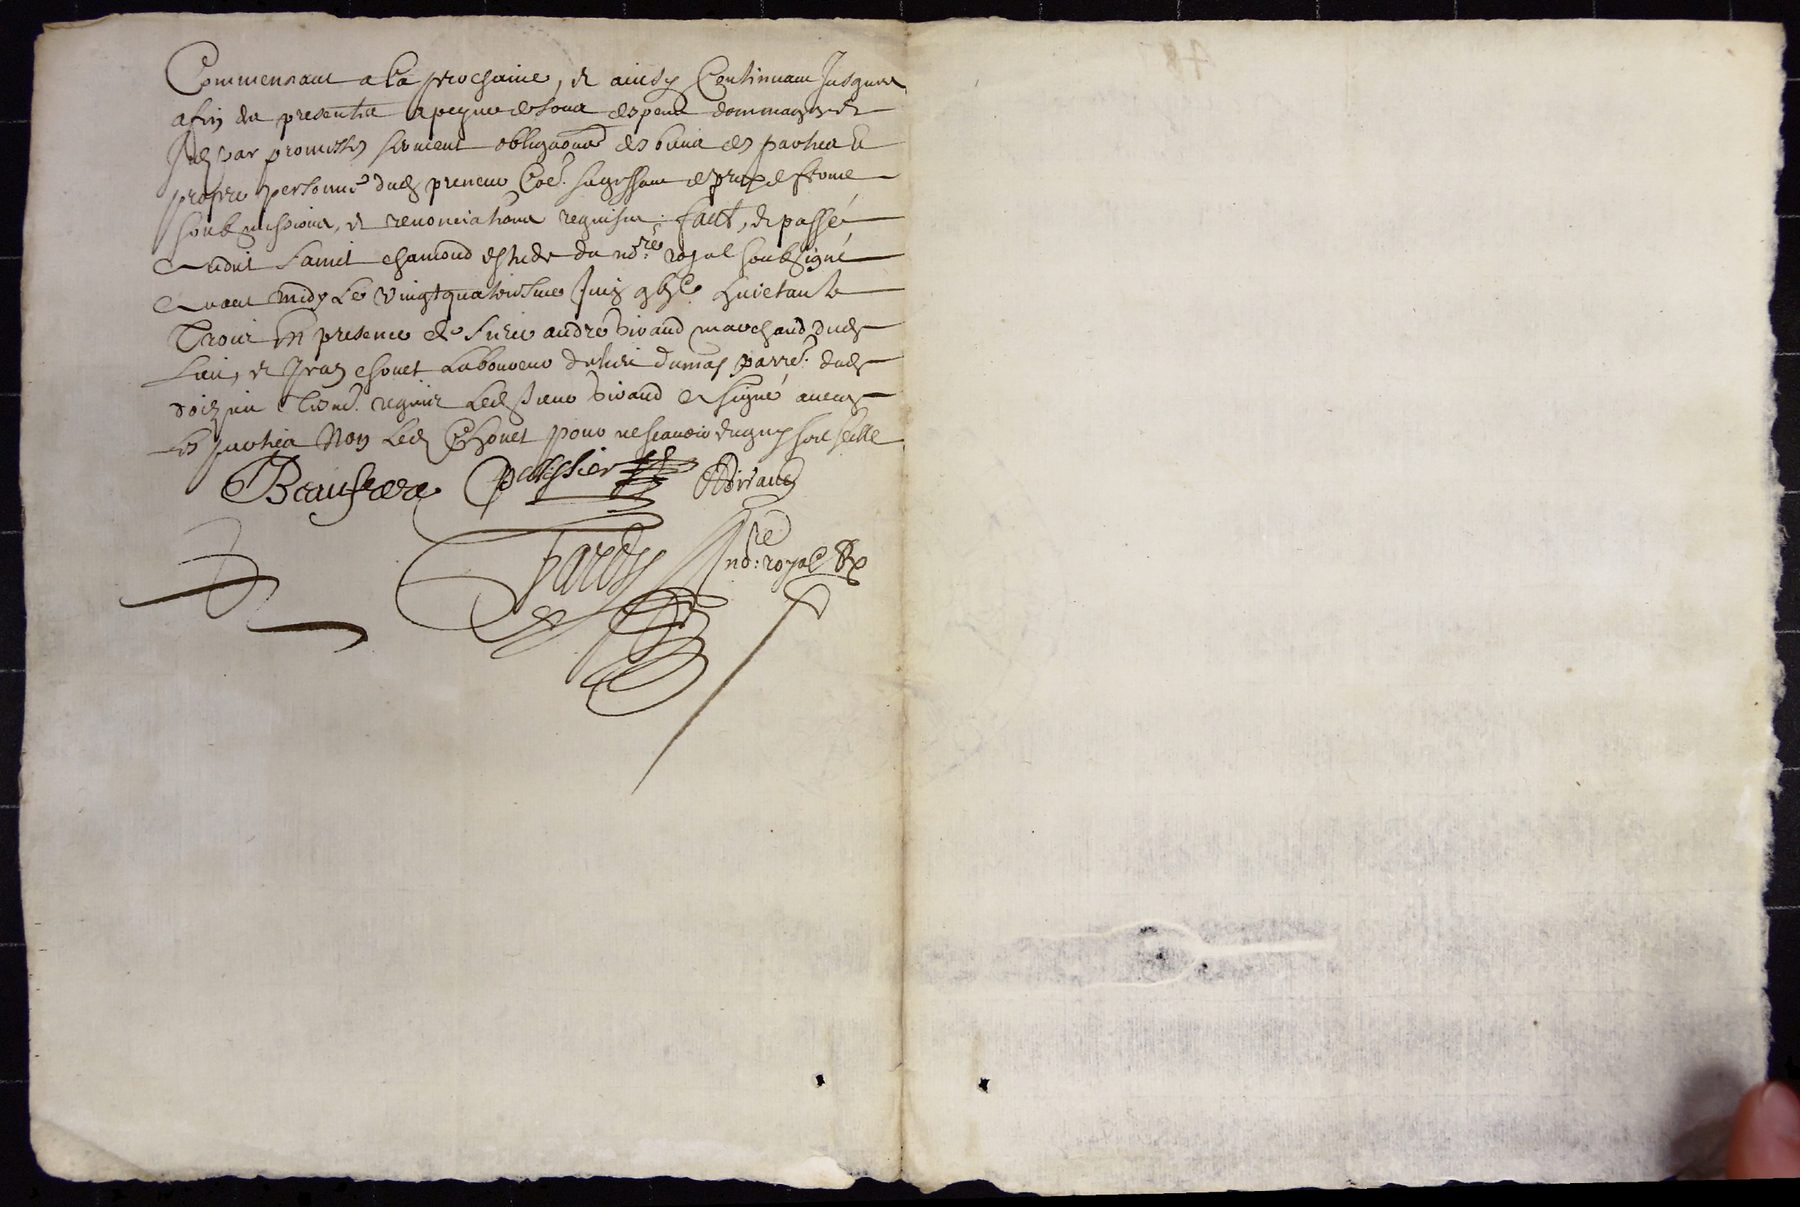 Commensant a la prochaine, et ainsy Continuant Jusques
a fin du presentta a peyne de tous despens dommages et
par promesses serment obliga͠ons des biens des parties Et
propre personne dud preneur sagissant de prix de ferme
soubmissions, et renonciations requises. faict, et passé
audit Sainct chamond estude du no.re royal soubsigné
avant midy Le vingtquatriesme Juin gbjc huictante
Trois En presence de Sieur andré Vivaud marchand dud
Lieu, et Jean chovet Laboureur du lieu dumas parre. dud
doizieu tesm. requis Led Sieur Vivaud a signé avecq
Les parties Non Led Chovet pour ne scavoir enquis
Beaufrere Pelissier AVivaud
Tardy no.re royal